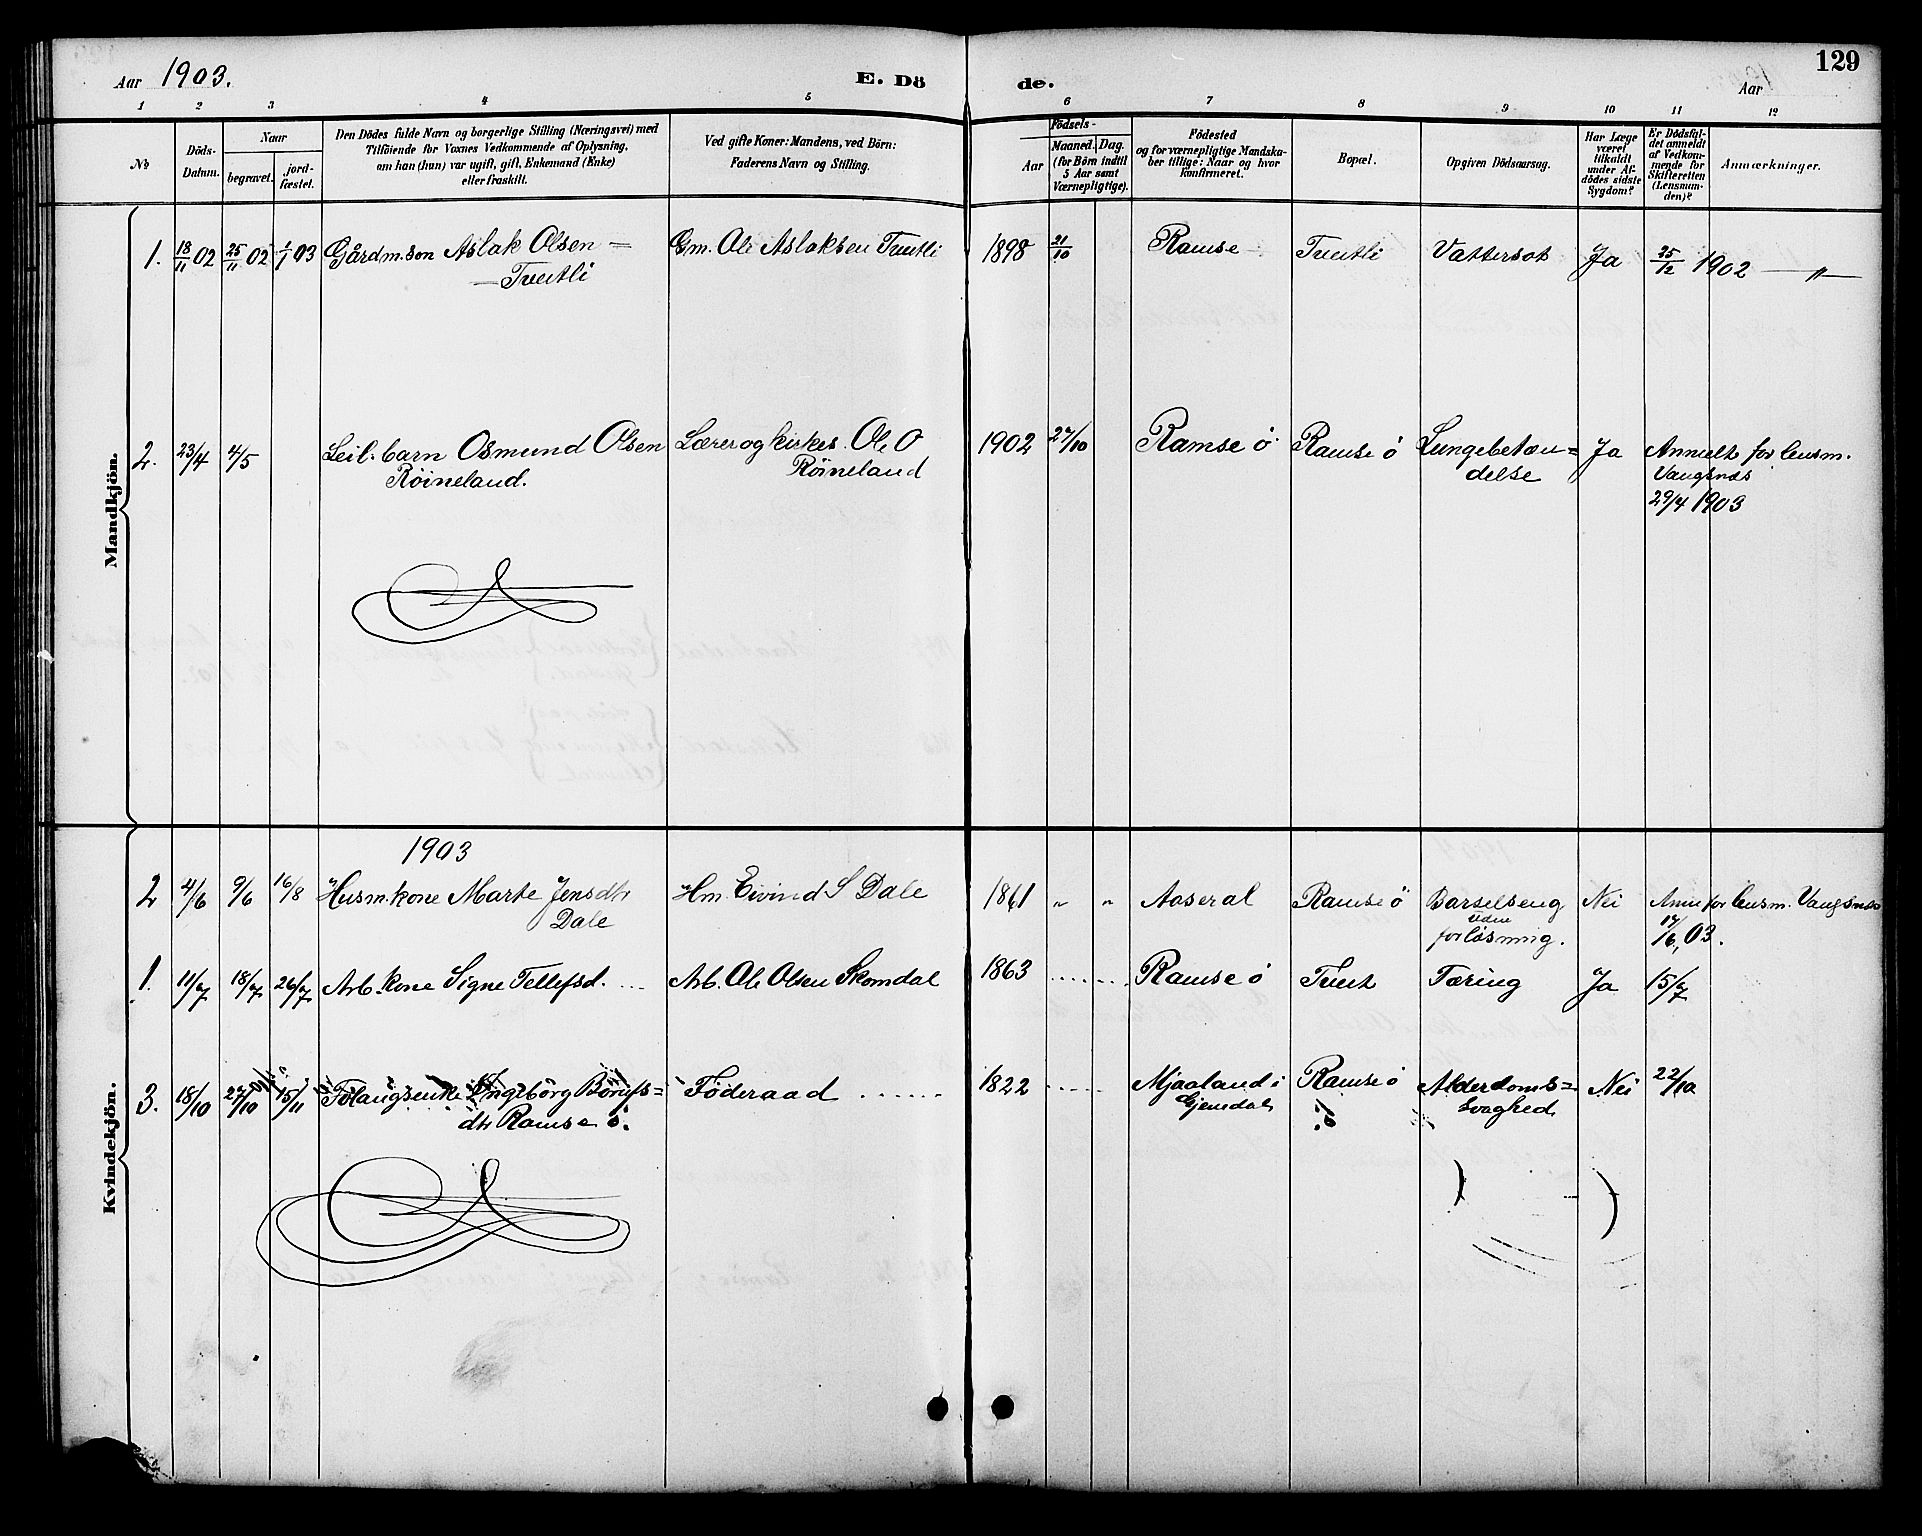 129
Aar 1903. E. Dö de. Aar
1 2 3 4 5 6 7 8 9 10 11 12
No
Döds-Datum.
Naar
begravet.
jord-fæstet.
Den Dödes fulde Navn og borgerlige Stilling (Næringsvei) med
Tilföiende for Voxnes Vedkommende af Oplysning,
om han (hun) var ugift, gift, Enkemand (Enke)
eller fraskilt.
Ved gifte Koner: Mandens, ved Börn:
Faderens Navn og Stilling.
Födsels-
Aar
Maaned. Dag.
(for Börn indtil
5 Aar samt
Værnepligtige).
Födested
og for værnepligtige Mandska-
ber tillige: Naar og hvor
konfirmeret.
Bopæl.
Opgiven Dödsaarsag.
Har Læge
været
tilkaldt
under Af-
dödes sidste
Sygdom?
Er Dödsfal-
det anmeldt
af Vedkom-
mende for
Skifteretten
(Lensman-
den)?
Anmærkninger.
Mandkjön.
1. 18/11 02 25/11 02 1/1 03 Gårdm.son Aslak Olsen = Gm. Ole Aslaksen Tveitli 1898 21/10 Ramse Tveitli Vattersot Ja 25/12 1902 — " —
— Tveitli
2. 23/4 4/5 Leil. barn Osmund Olsen Lærer og kirkes. Ole O 1902 27/10 Ramse ö Ramse ö Lungebetæn= Ja Anmelt for lensm.
Röineland. Röineland delse Vangsnæs
29/4 1903
Kvindekjön.
1903
2 4/6 9/6 16/8 Husm.kone Marte Jensdtr Hm. Eivind S Dale 1861 " " Aaseral Ramse ö Barselseng Nei Anm for lensm. Vangsnæs
Dale uden 17/6, 03.
forlösning.
1. 11/7 18/7 26/7 Arb. kone Signe Tellefsd. ... Arb. Ole Olsen Skomdal 1863 ....... Ramse ö Tveit Tæring Ja 15/7
3. 18/10 27/10 15/11 Ingebörg Föderaad ...... 1822 ..... Mjaaland i Ramse ö Alderdoms= Nei 22/10
dtr Ramse ö. Gjevdal svaghed